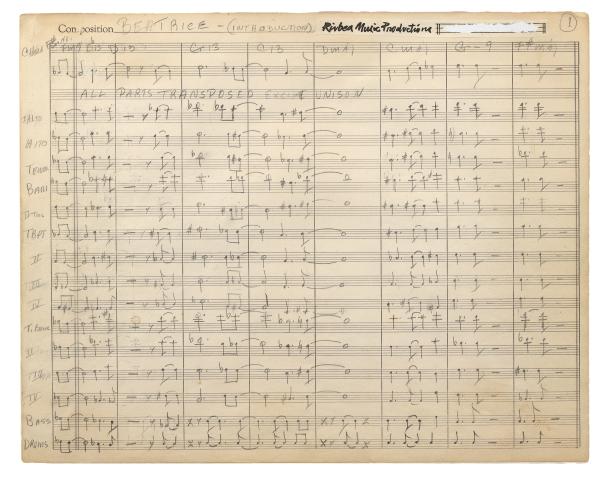 Composition BEATRICE - (INTRODUCTION) Rivbea Music Productions 1
G13 C13 Dmaj Cmaj G-9 F#maj
ALL PARTS TRANSPOSED EXCEPT UNISON
ALTO
ALTO
TENOR
BARI
TRPT
II
III
IV
T. Bone
II
III
IV
BASS
DRUMS